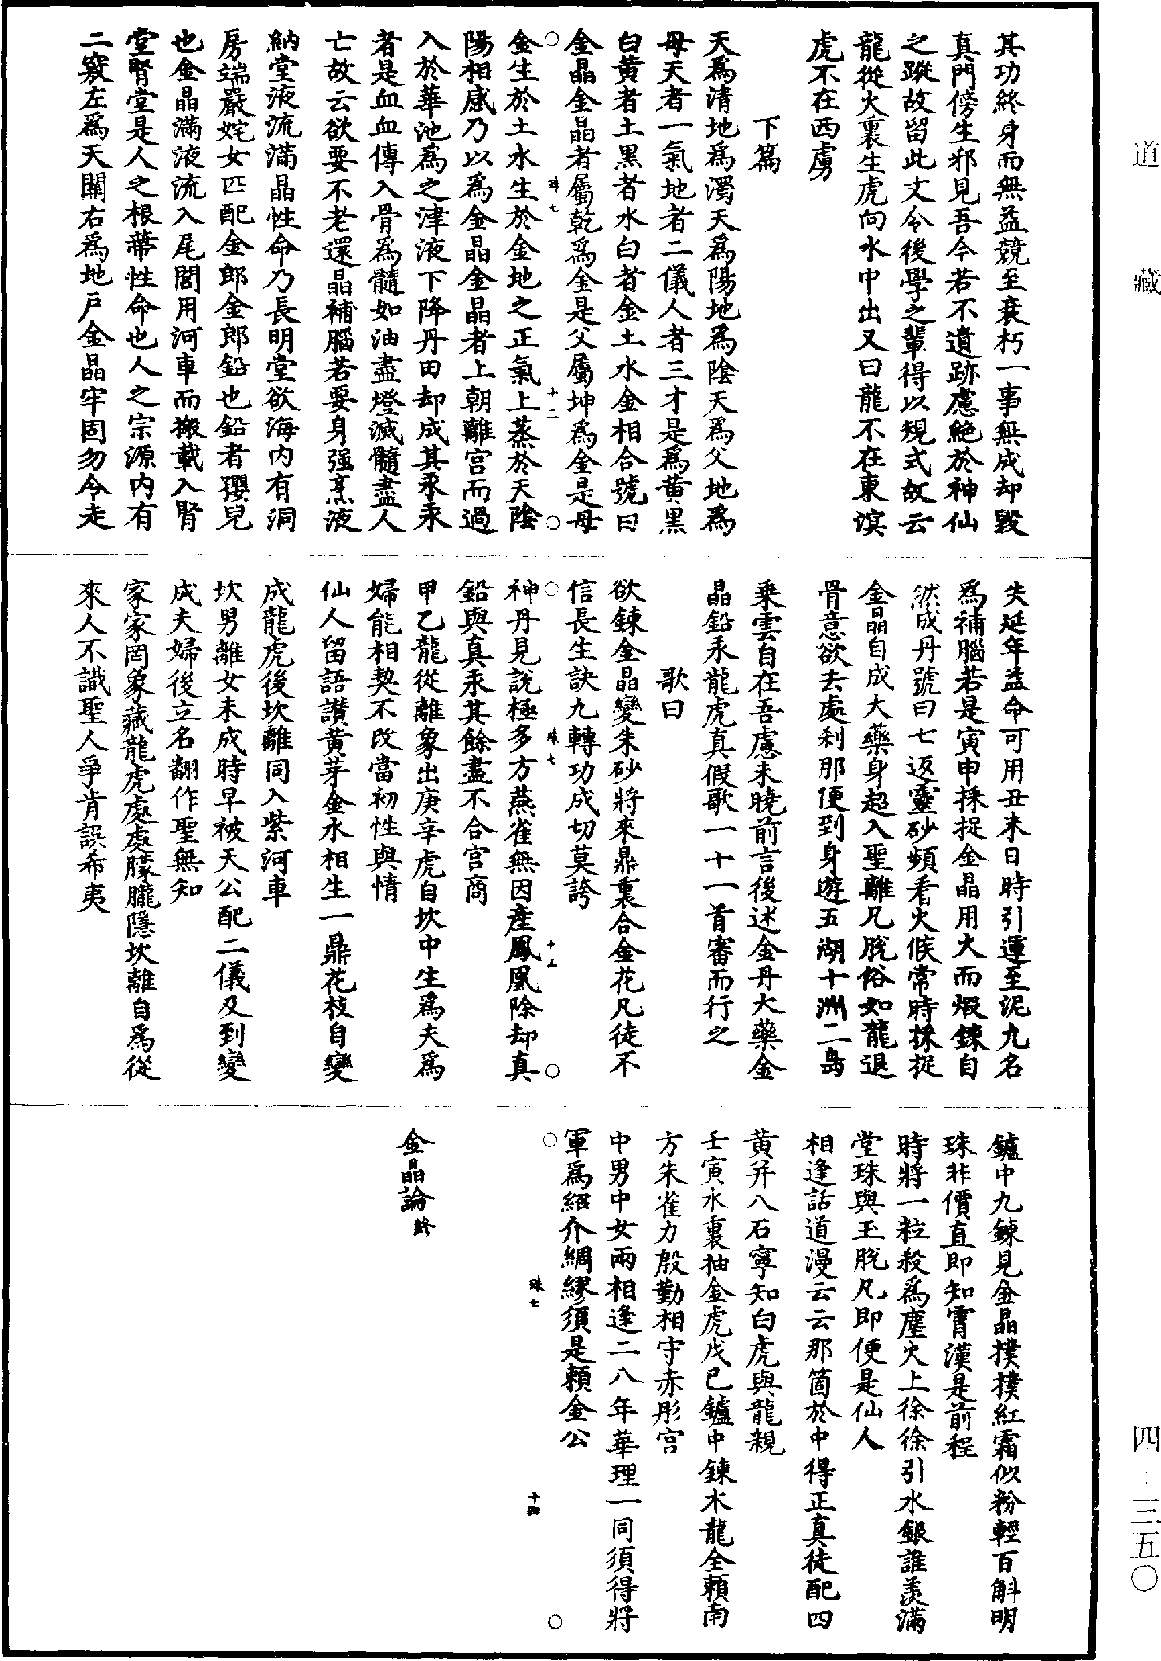 道藏
四·三五〇
其功終身而無益競至衰朽一事無成却毀
真門傍生邪見吾今若不遺跡慮絕於神仙
之蹤故留此文令後學之輩得以規式故云
龍從火裏生虎向水中出又曰龍不在東溟
虎不在西虜
下篇
天為清地為濁天為陽地為陰天為父地為
母天者一氣地者二儀人者三才是為黃黑
白黃者土黑者水白者金土水金相合號曰
金晶金晶者屬乾為金是父屬坤為金是母
珠七
十二
金生於土水生於金地之正氣上蒸於天陰
陽相感乃以為金晶金晶者上朝離宮而過
入於華池為之津液下降丹田却成其汞汞
者是血血傳入骨為髓如油盡燈滅髓盡人
亡故云欲要不老還晶補腦若要身強烹液
納堂液流滿晶性命乃長明堂欲海内有洞
房端嚴姹女匹配金郎金郎鉛也鉛者嬰兒
也金晶滿液流入尾閭用河車而搬載入腎
堂腎堂是人之根蔕性命也人之宗源内有
二竅左為天關右為地戶金晶牢固勿令走
失延年益命可用丑未日時引運至泥九名
為補腦若是寅申採捉金晶用火而煅鍊自
然成丹號曰七返靈砂頻看火候常時採捉
金晶自成大藥身超入聖離凡脫俗如龍退
骨意欲去處刹那便到身遊五湖十洲二島
乘雲自在吾慮未曉前言後述金丹大藥金
晶鉛汞龍虎真假歌一十一首審而行之
歌曰
欲鍊金晶變朱砂將來鼎裏合金花凡徒不
信長生訣九轉功成切莫誇
珠七
十三
神丹見說極多方燕雀無因産鳳凰除却真
鉛與真汞其餘盡不合宮商
甲乙龍從離象出庚辛虎自坎中生為夫為
婦能相契不改當初性與情
仙人留語讚黃芽金水相生一鼎花枝自變
成龍虎後坎離同入紫河車
坎男離女未成時早被天公配二儀及到變
成夫婦後立名翻作聖無知
家家罔象藏龍虎處處朦朧隱坎離自為從
來人不識聖人爭肯誤希夷
鑪中九鍊見金晶撲撲紅霜似粉輕百斛明
珠非價直即知霄漢是前程
時將一粒殺為塵火上徐徐引水銀誰羨滿
堂珠與玉脫凡即便是仙人
相逢話道漫云云那箇於中得正真徒配四
黃幷八石寧知白虎與龍親
壬寅水裏抽金虎戊已鑪中鍊木龍全賴南
方朱雀力殷勤相守赤彤宮
中男中女兩相逢二八年華理一同須得將
軍為紹介綢繆須是賴金公
珠七
十四
金晶論終